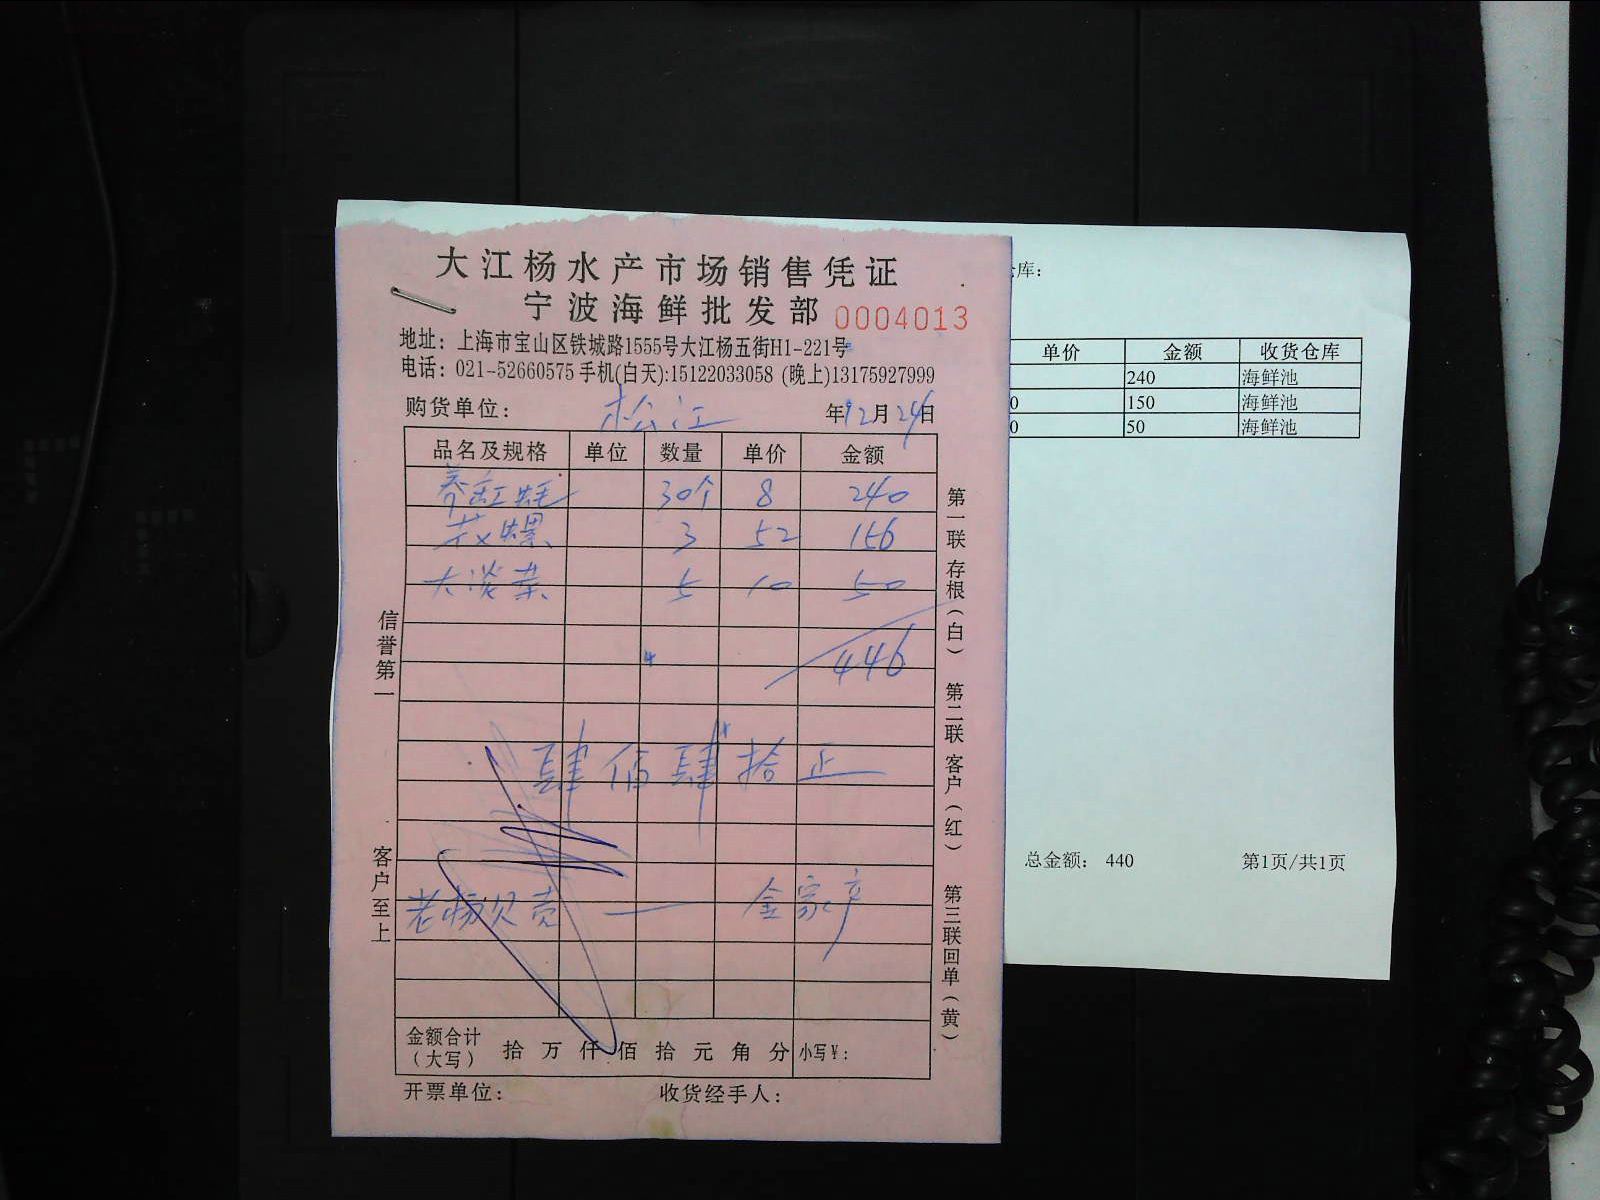 大江杨水产市场销售凭证
宁波海鲜批发部 0004013
地址：上海市宝山区铁城路1555号大江杨五街H1-221号
电话：021-52660575 手机(白天):15122033058 (晚上)13175927999
购货单位： 松江 年12月24日
品名及规格 单位 数量 单价 金额
30个 8 240
花螺 3 52 156
大淡菜 5 10 50
446
肆佰肆拾正
老杨贝壳 — 金家产
金额合计
（大写） 拾万仟佰拾元角分 小写¥：
开票单位： 收货经手人：
信誉第一
客户至上
第一联存根（白） 第二联客户（红） 第三联回单（黄）
库：
单价 金额 收货仓库
240 海鲜池
0 150 海鲜池
0 50 海鲜池
总金额： 440 第1页/共1页